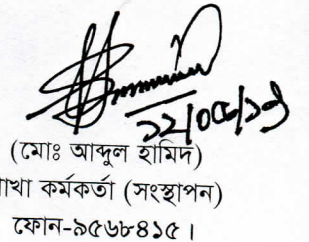 ১২/০৫/১৩
(মোঃ আব্দুল হামিদ)
শাখা কর্মকর্তা (সংস্থাপন)
ফোন-৯৫৬৮৪১৫।